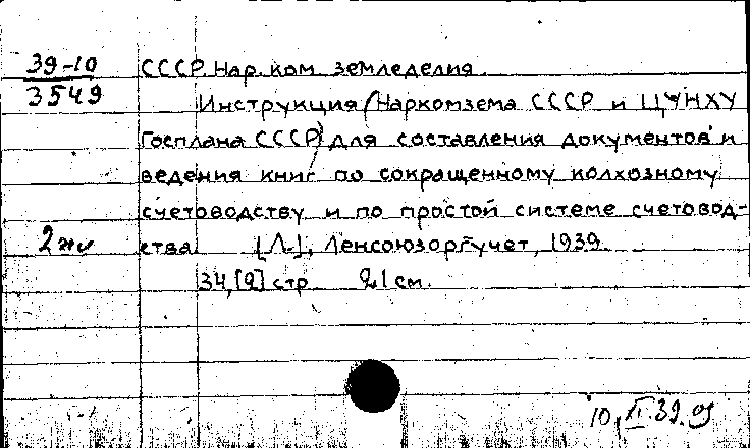 39-10
3549
СССР. Нар. ком. земледелия.
Инструкция (Наркомзема СССР и ЦУНХУ
Госплана СССР) для составления документов и
ведения книг по сокращенному колхозному
счетоводству и по простой системе счетовод-
2 экз ства [Л.], Ленсоюзоргучет, 1939.
34,[2] стр. 21 см.
10.XI.39.